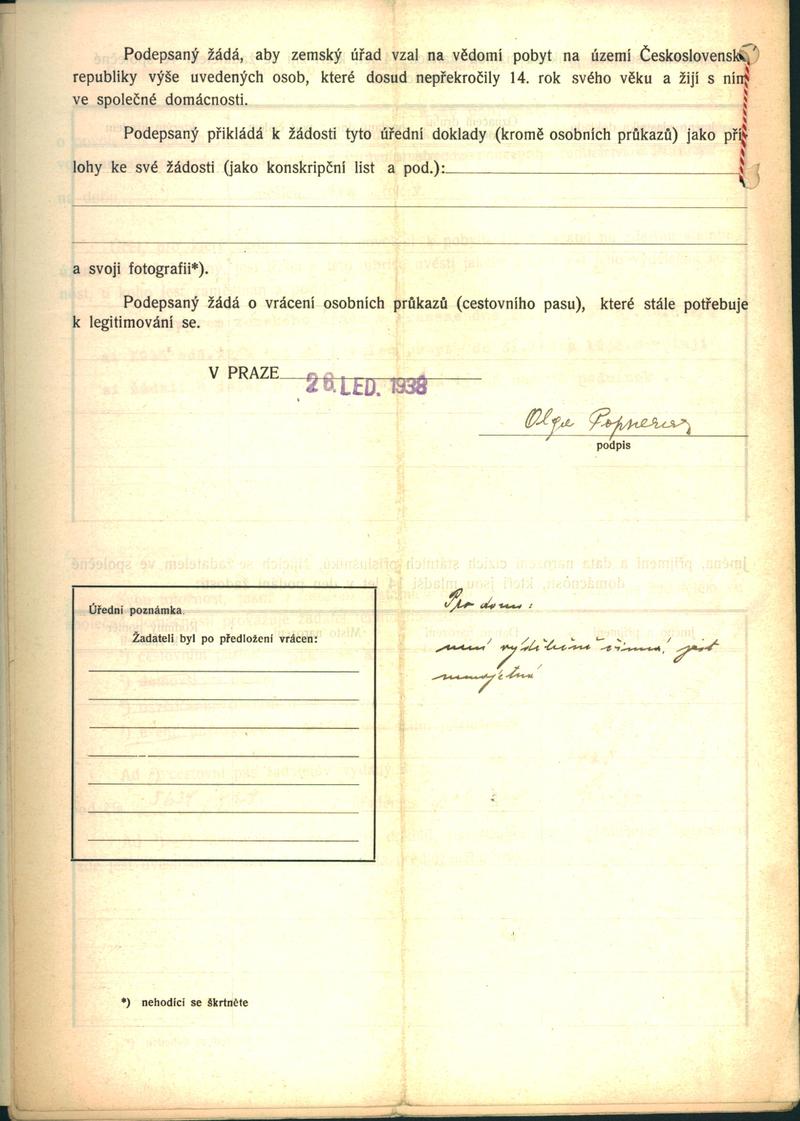 Podepsaný žádá, aby zemský úřad vzal na vědomí pobyt na území Československé
republiky výše uvedených osob, které dosud nepřekročily 14. rok svého věku a žijí s ním
ve společné domácnosti.
Podepsaný přikládá k žádosti tyto úřední doklady (kromě osobních průkazů) jako pří-
lohy ke své žádosti (jako konskripční list a pod.):
a svoji fotografii*).
Podepsaný žádá o vrácení osobních průkazů (cestovního pasu), které stále potřebuje
k legitimování se.
V PRAZE 26. LED. 1938
Olga
podpis
Úřední poznámka.
Žadateli byl po předložení vrácen:
Pro domo:
není výdělečně činná, jest
nemajetná
*) nehodící se škrtněte